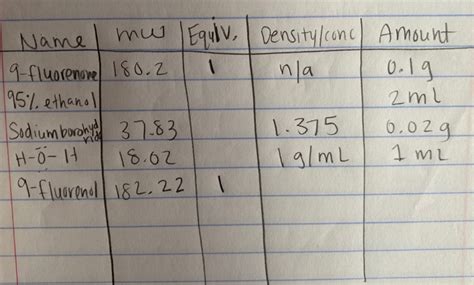 Name mw Equiv. Density/conc Amount
9-fluorenone 180.2 1 n/a 0.1g
95% ethanol 2ml
Sodium borohydride 37.83 1.375 0.02g
H-O-H 18.02 1g/mL 1 mL
9-fluorenol 182.22 1